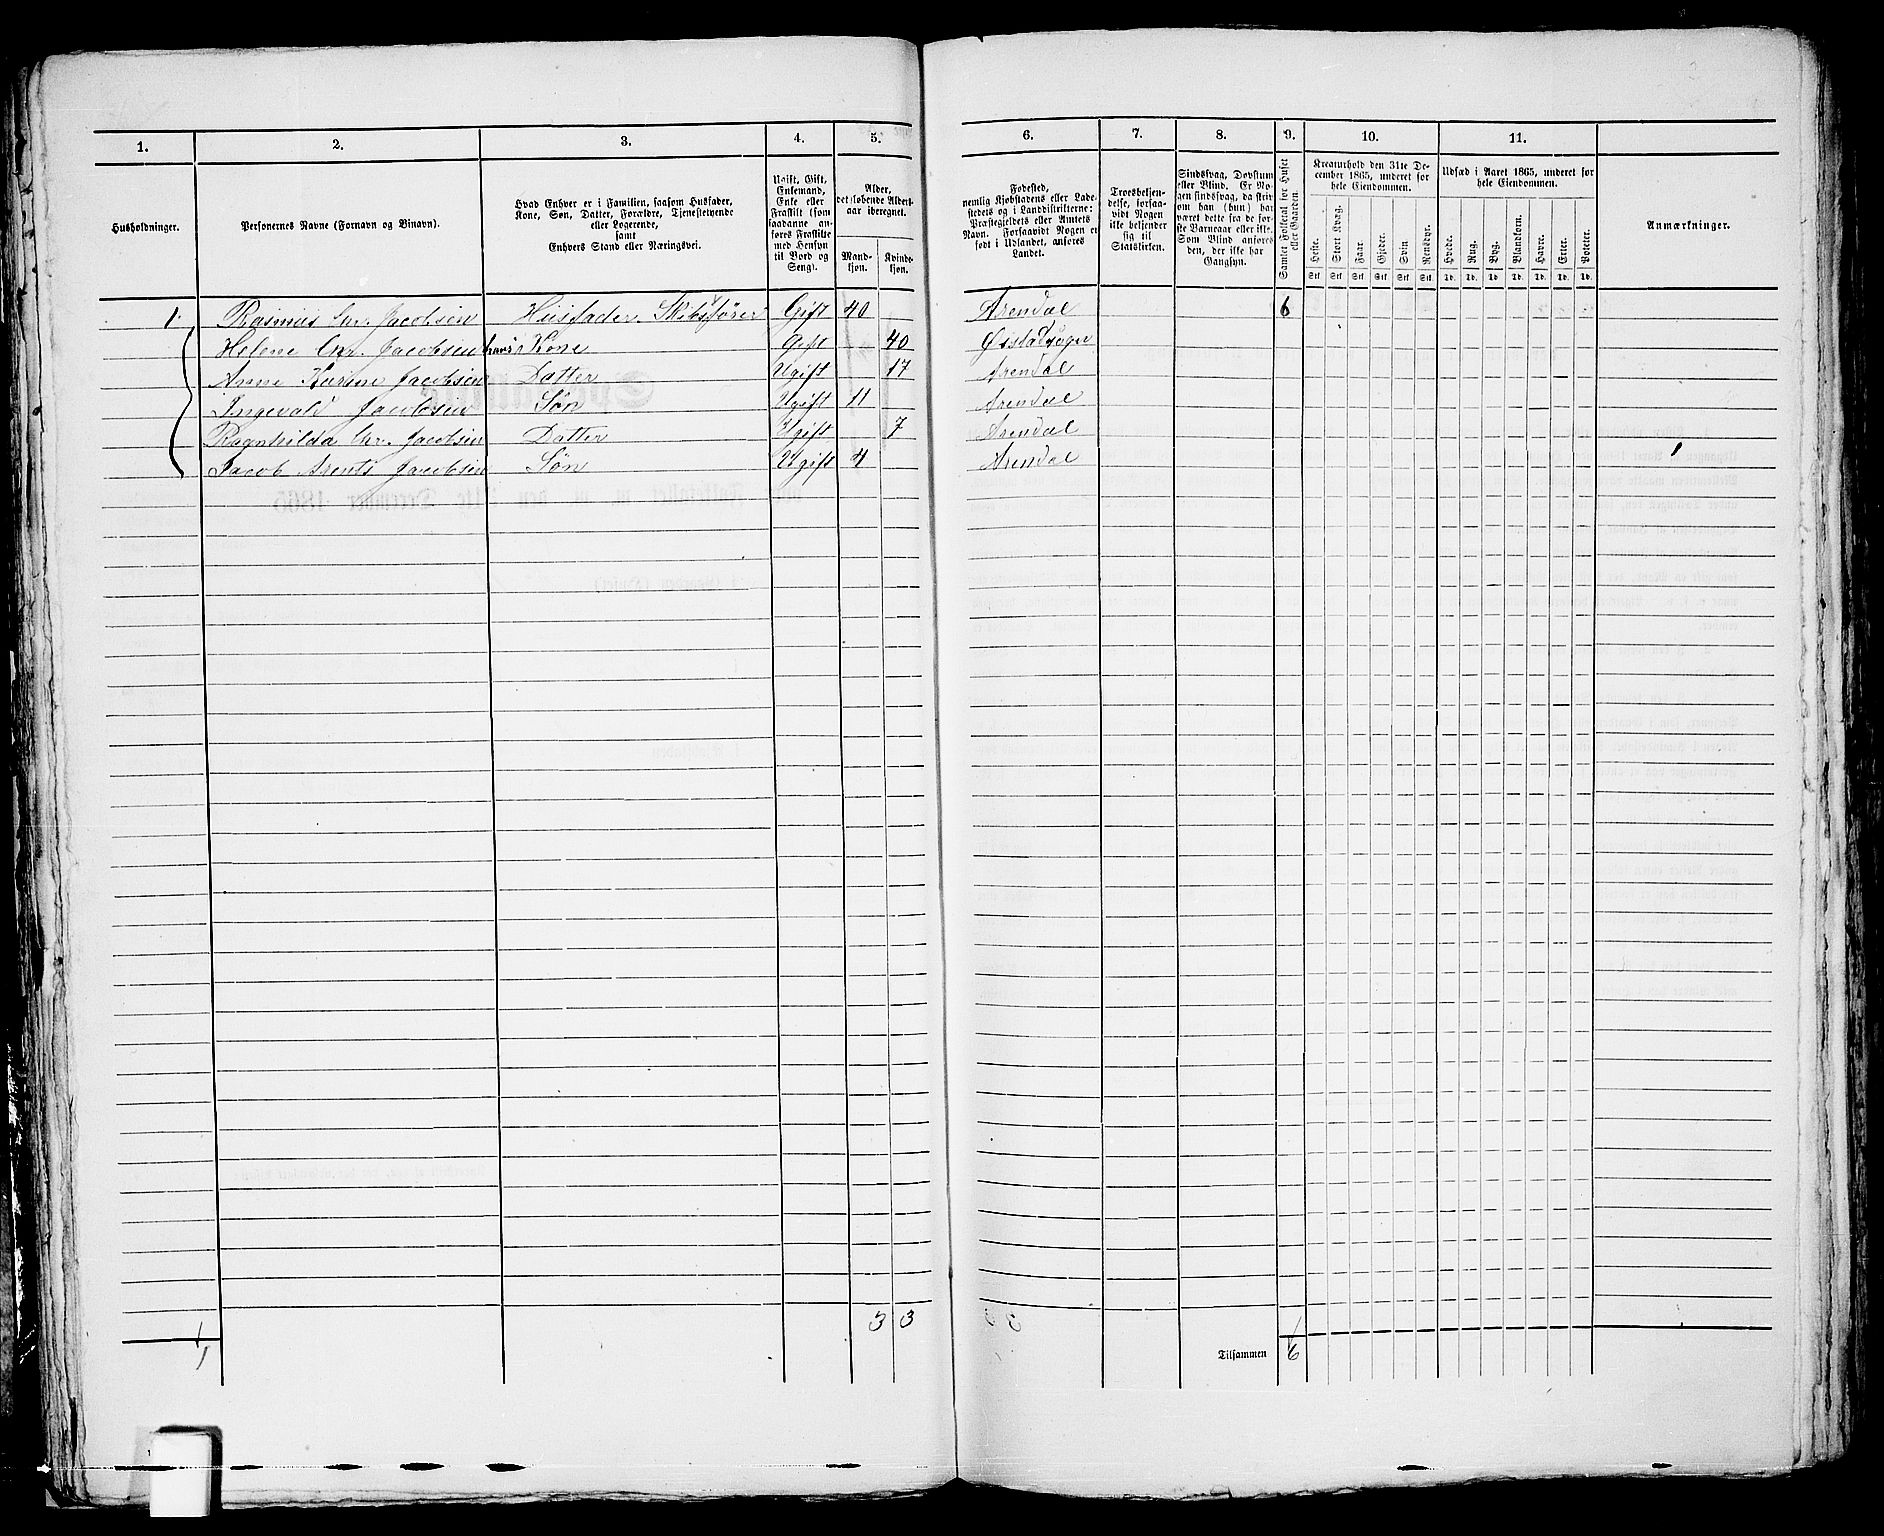 1. 2. 3. 4. 5. 6. 7. 8. 9. 10. 11.
Husholdninger.
Personernes Navne (Fornavn og Binavn).
Hvad Enhver er i Familien, saasom Husfader,
Kone, Søn, Datter, Forældre, Tjenestetyende
eller Logerende,
samt
Enhvers Stand eller Næringsvei.
Ugift, Gift,
Enkemand,
Enke eller
Fraskilt (som
saadanne an-
føres Fraskilte
med Hensyn
til Bord og
Seng).
Alder,
det løbende Alders-
aar iberegnet.
Mand-
kjøn.
Kvinde-
kjøn.
Fødested,
nemlig Kjøbstadens eller Lade-
stedets og i Landdistrikterne:
Præstegjeldets eller Amtets
Navn. Forsaavidt Nogen er
født i Udlandet, anføres
Landet.
Troesbekjen-
delse, forsaa-
vidt Nogen
ikke bekjender
sig til
Statskirken.
Sindssvag, Døvstum
eller Blind. Er No-
gen sindssvag, da skriv
om han (hun) har
været dette fra de før-
ste Barneaar eller ikke.
Som Blind anføres
den, der ikke har
Gangsyn.
Samlet Folketal for Huset
eller Gaarden.
Kreaturhold den 31te De-
cember 1865, underet for
hele Eiendommen.
Heste. Stort Kvæg. Faar. Gjeder. Svin. Rensdyr.
Stk. Stk. Stk. Stk. Stk. Stk.
Udsæd i Aaret 1865, underet for
hele Eiendommen.
Hvede. Rug. Byg. Blandkorn. Havre. Erter. Poteter.
Td. Td. Td. Td. Td. Td. Td.
Anmærkninger.
1. Rasmus Chr. Jacobsen Husfader. Skibsfører Gift 40 Arendal 6
Helene Chr. Jacobsen hans Kone Gift 40 Øistadsogn
Anne Karine Jacobsen Datter Ugift 17 Arendal
Ingevald Jacobsen Søn Ugift 11 Arendal
Ragnhilda Chr. Jacobsen Datter Ugift 7 Arendal
Jacob Arents Jacobsen Søn Ugift 4 Arendal
3 3
1
Tilsammen 6